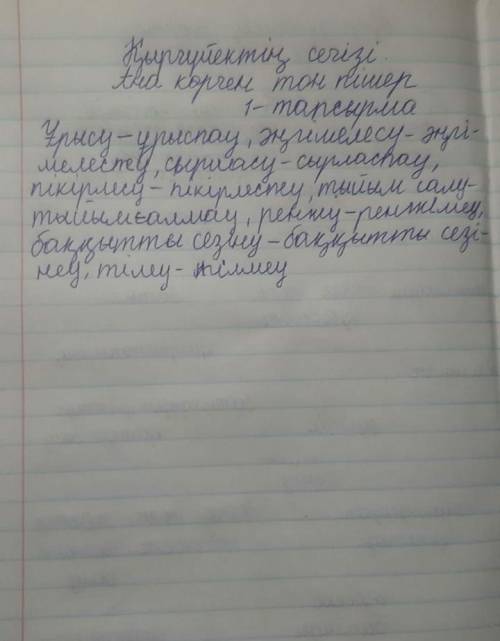 Қыргүйектің сегізі
Ана көрген тон пішер
1-тапсырма
Ұрысу-ұрыспау, әңгімелесу-әңгі-
мелестеу, сырласу-сырласпау,
пікірлесу-пікірлестеу, тыйым салу-
тыйымсалмау, ренжу-ренжімеу,
баққытты сезіну-баққытты сезі-
неу, тілеу-тілмеу